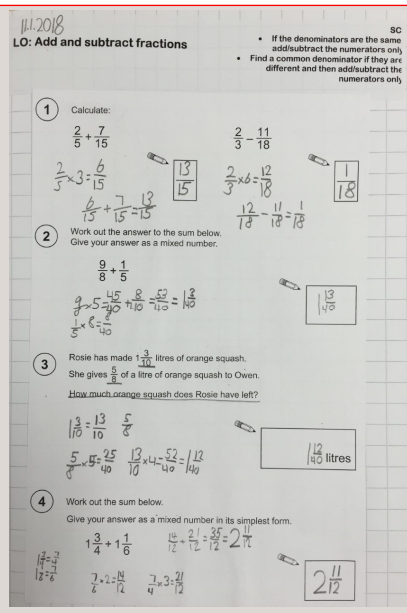 11.1.2018
LO: Add and subtract fractions
SC
• If the denominators are the same
add/subtract the numerators only
• Find a common denominator if they are
different and then add/subtract the
numerators only
1 Calculate:
2/5 + 7/15
2/3 − 11/18
2/5 ×3 = 6/15
13/15
2/3 ×6 = 12/18
1/18
6/15 + 7/15 = 13/15
12/18 − 11/18 = 1/18
2 Work out the answer to the sum below.
Give your answer as a mixed number.
9/8 + 1/5
9/8 ×5 = 45/40 + 8/40 = 53/40 = 1 13/40
1/5 ×8 = 8/40
1 13/40
3 Rosie has made 1 3/10 litres of orange squash.
She gives 5/8 of a litre of orange squash to Owen.
How much orange squash does Rosie have left?
1 3/10 = 13/10 5/8
5/8 ×5 = 25/40 13/10 ×4 = 52/40 = 1 12/40
1 12/40 litres
4 Work out the sum below.
Give your answer as a mixed number in its simplest form.
1 3/4 + 1 1/6
14/12 + 21/12 = 35/12 = 2 11/12
1 3/4 = 7/4
1 1/6 = 7/6
7/6 ×2 = 14/12 7/4 ×3 = 21/12
2 11/12